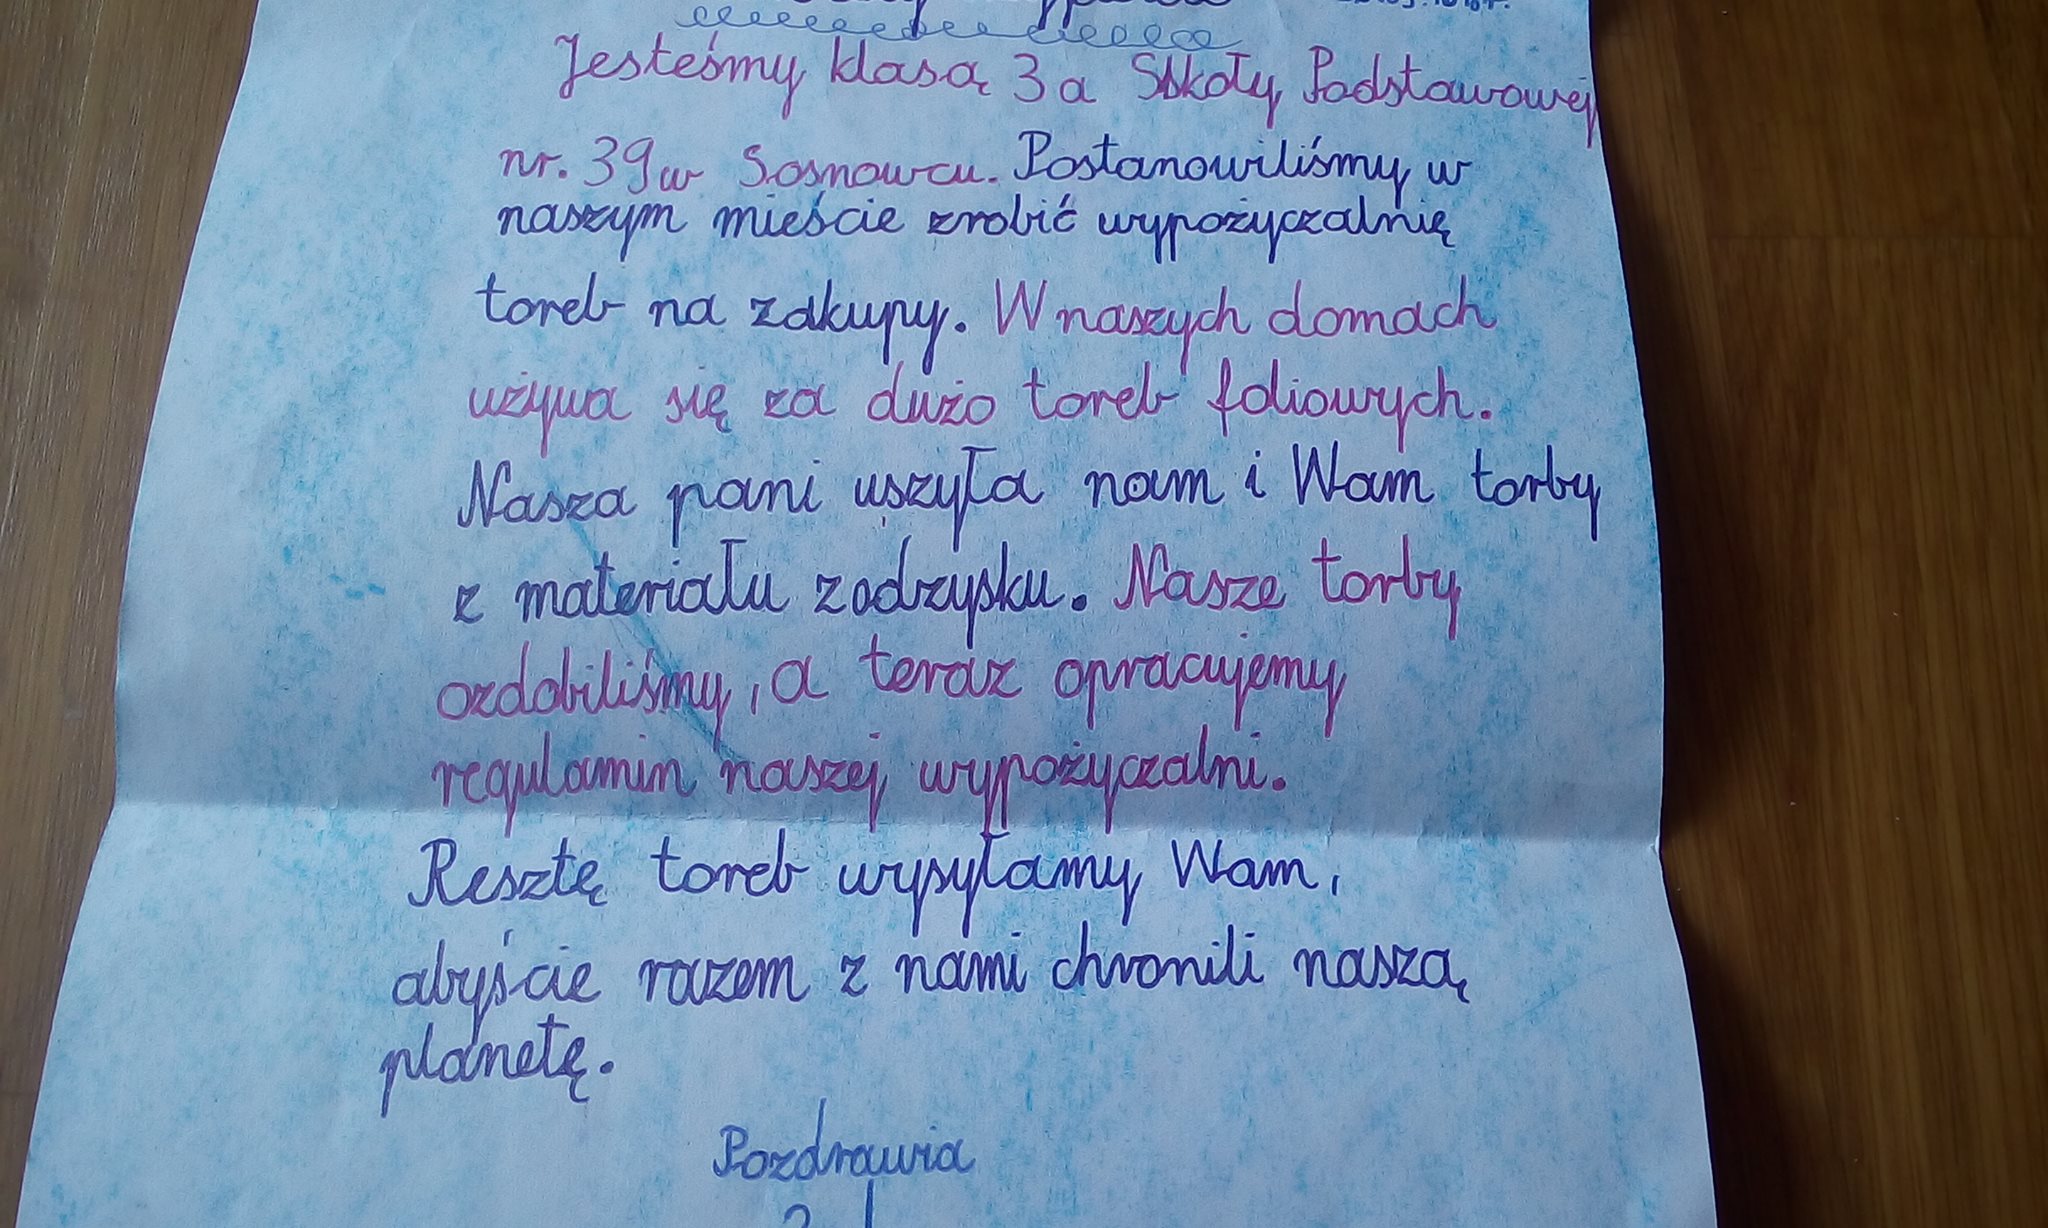 Jesteśmy klasą 3a Szkoły Podstawowej
nr. 39 w Sosnowcu. Postanowiliśmy w
naszym mieście zrobić wypożyczalnię
toreb na zakupy. W naszych domach
używa się za dużo toreb foliowych.
Nasza pani uszyła nam i Wam torby
z materiału z odzysku. Nasze torby
ozdobiliśmy, a teraz opracujemy
regulamin naszej wypożyczalni.
Resztę toreb wysyłamy Wam,
abyście razem z nami chronili naszą
planetę.
Pozdrawia